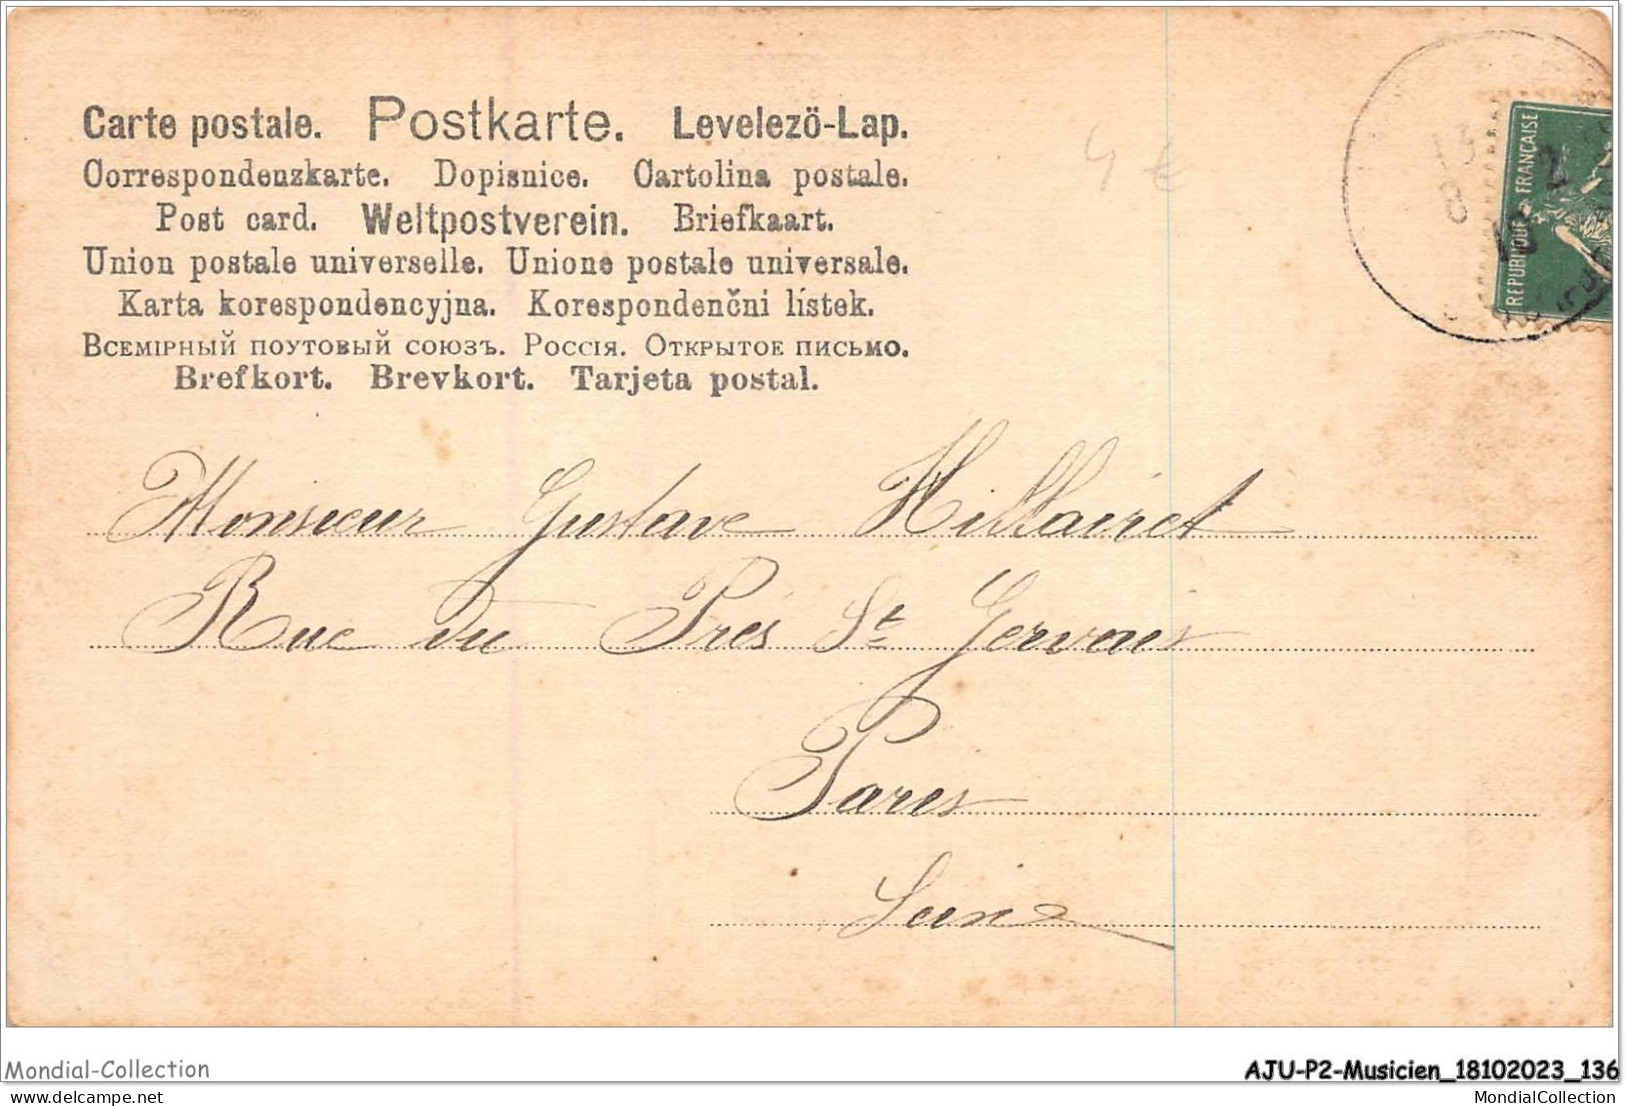 Carte postale. Postkarte. Levelezö-Lap.
Correspondenzkarte. Dopisnice. Cartolina postale.
Post card. Weltpostverein. Briefkaart.
Union postale universelle. Unione postale universale.
Karta korespondencyjna. Korespondenčni lístek.
Всемірный поутовый союзъ. Россія. Открытое письмо.
Brefkort. Brevkort. Tarjeta postal.
4 €
REPUBLIQUE FRANÇAISE
13
8
2
10
Monsieur Gustave Hillairet
Rue du Prés St Gervais
Paris
Seine
Mondial-Collection
AJU-P2-Musicien_18102023_136
MondialCollection